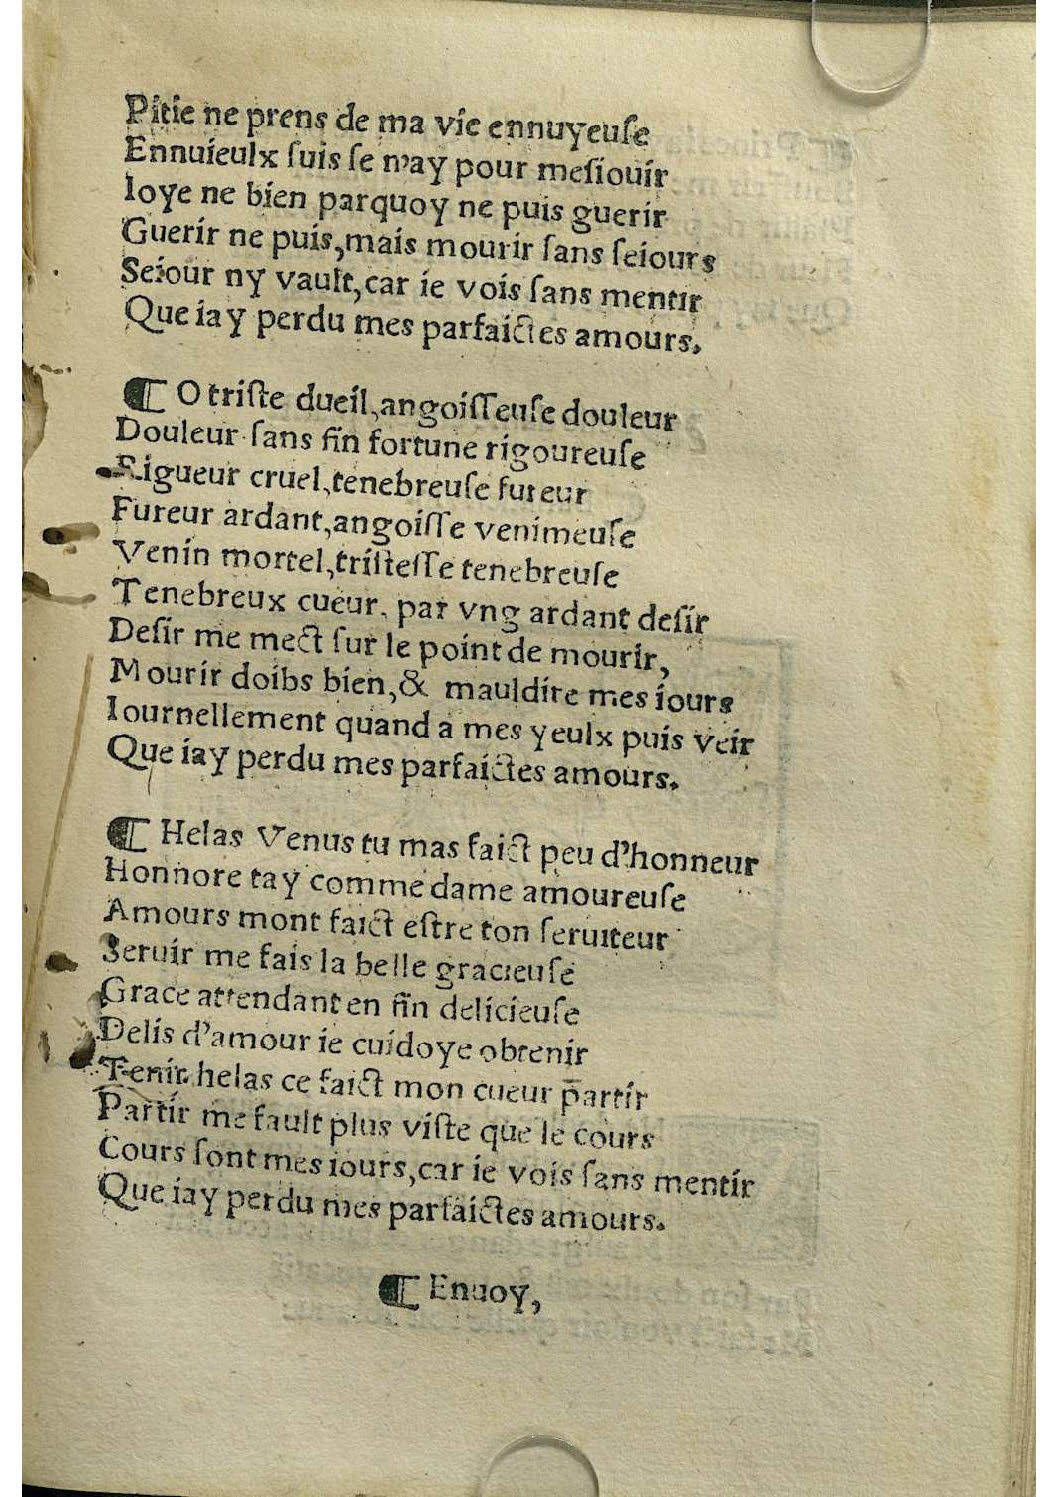 Pitie ne prens de ma vie ennuyeuſe
Ennuieulx ſuis ſe n'ay pour meſiouir
Ioye ne bien parquoy ne puis guerir
Guerir ne puis,mais mourir ſans ſeiours
Seiour ny vault,car ie vois ſans mentir
Que iay perdu mes parfaictes amours.
¶ O triſte dueil,angoiſſeuſe douleur
Douleur ſans fin fortune rigoureuſe
Rigueur cruel,tenebreuſe fureur
Fureur ardant,angoiſſe venimeuſe
Venin mortel,triſteſſe tenebreuſe
Tenebreux cueur. par vng ardant deſir
Deſir me mect ſur le point de mourir,
Mourir doibs bien,& mauldire mes iours
Iournellement quand a mes yeulx puis veir
Que iay perdu mes parfaictes amours.
¶ Helas Venus tu mas faict peu d'honneur
Honnore tay comme dame amoureuſe
Amours mont faict eſtre ton ſeruiteur
Seruir me fais la belle gracieuſe
Grace attendant en fin delicieuſe
Delis d'amour ie cuidoye obtenir
Tenir helas ce faict mon cueur p̄artir
Partir me fault plus viſte que le cours
Cours ſont mes iours,car ie vois ſans mentir
Que iay perdu mes parfaictes amours.
¶ Enuoy,